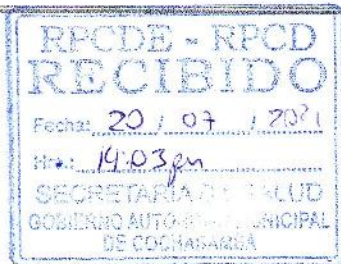 RPCDE - RPCD
RECIBIDO
Fecha: 20 / 07 / 2021
Hra.: 14:03 pm
SECRETARÍA DE SALUD
GOBIERNO AUTÓNOMO MUNICIPAL
DE COCHABAMBA